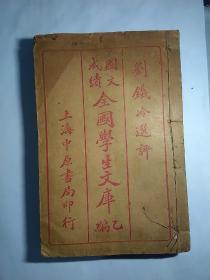 劉鐵冷選評
國文成績
全國學生文庫
乙編
上海中原書局印行